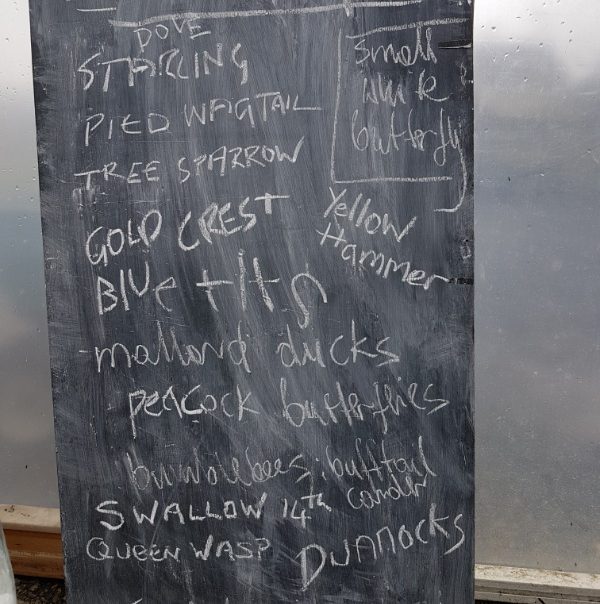 DOVE
STARLING
PIED WAGTAIL
TREE SPARROW
GOLD CREST
Blue tits
mallard ducks
PEACOCK butterflies
bumblebees: bufftail
SWALLOW 14th
QUEEN WASP
Dunnocks
small
white
butterfly
Yellow
Hammer